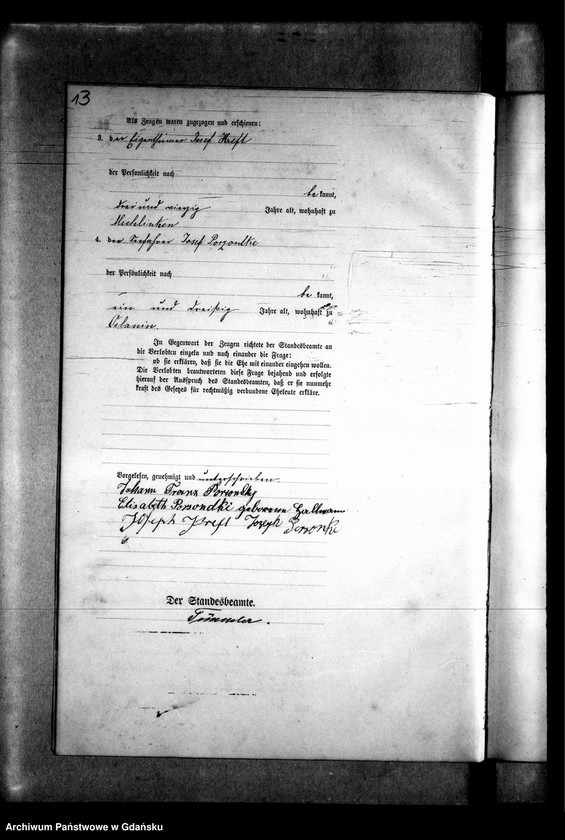 13
Als Zeugen waren zugezogen und erschienen:
3. der Eigenthümer Josef Kreft
der Persönlichkeit nach
be kannt,
drei und vierzig Jahre alt, wohnhaft zu
Mechlinken
4. der Seefahrer Josef
der Persönlichkeit nach
be kannt,
ein und dreißig Jahre alt, wohnhaft zu
Oslanin.
In Gegenwart der Zeugen richtete der Standesbeamte an
die Verlobten einzeln und nach einander die Frage:
ob sie erklären, daß sie die Ehe mit einander eingehen wollen.
Die Verlobten beantworteten diese Frage bejahend und erfolgte
hierauf der Ausspruch des Standesbeamten, daß er sie nunmehr
kraft des Gesetzes für rechtmäßig verbundene Eheleute erkläre.
Vorgelesen, genehmigt und unterschrieben
Johann Franz
Elisabeth geborene
Joseph Kreft
Der Standesbeamte.
Archiwum Państwowe w Gdańsku